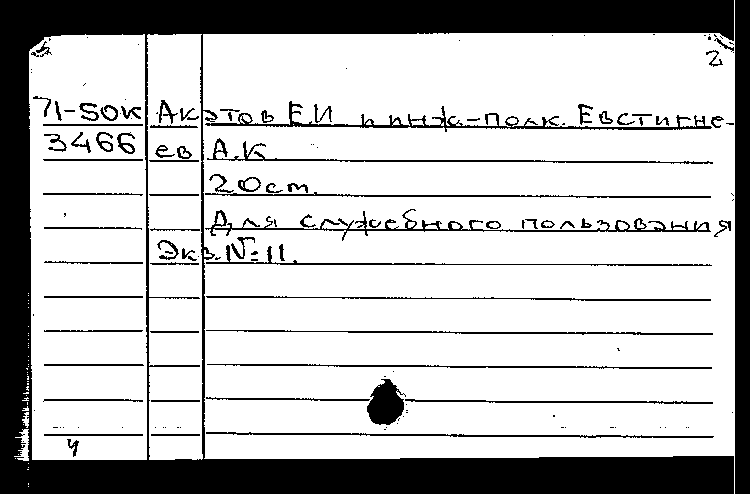 2
71-50К Акэтов Е.И и инж-полк. Евстигне-
3466 ев А.К.
20ст.
Для служебного пользования
Экз.№11.
4